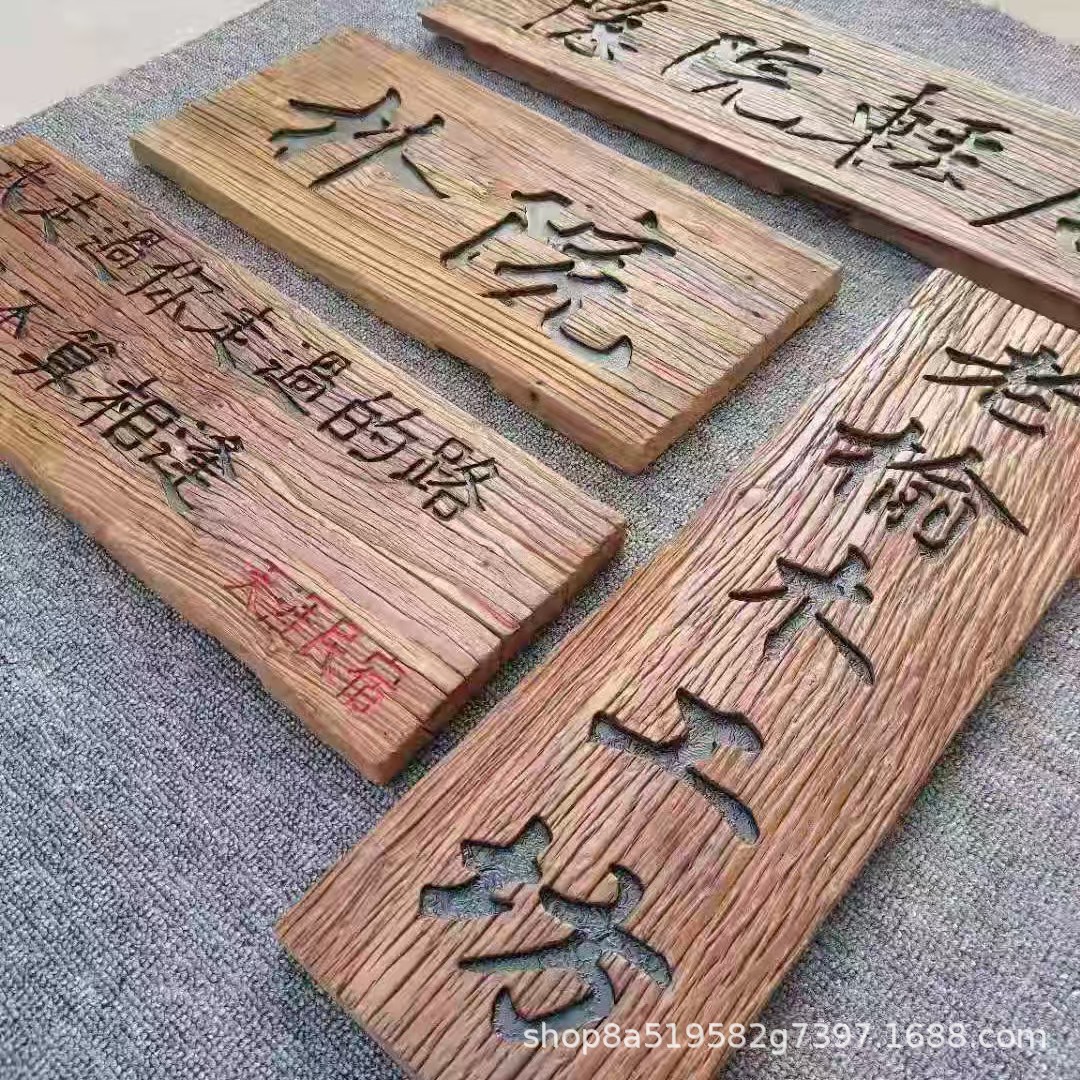 院輕
院
我走過你走過的路
不算相逢
民宿
老榆木工坊
shop8a519582g7397.1688.com